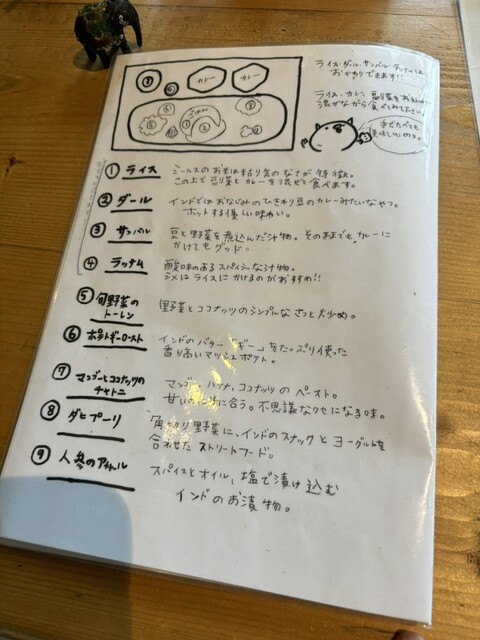 ライス・ダール・サンバル・ラッサムは
おかわりできます!!
ライス、カレー、副菜をお
混ぜながら食べてみてください
手でたべても
美味しいのヨ。
③
④
カレー
カレー
ごはん
①
②
① ライス
ミールスのお米は粘り気のなさが特徴。
この上で副菜とカレーを混ぜて食べます。
② ダール
インドではおなじみのひきわり豆のカレーみたいなやつ。
ホッとする優しい味わい。
③ サンバル
豆と野菜を煮込んだ汁物。そのままでも、カレーに
かけてもグッド。
④ ラッサム
酸味のあるスパイシーな汁物。
シメはライスにかけるのがおすすめ!!
⑤ 旬野菜の
トーレン
野菜とココナッツのシンプルなさっと炒め。
⑥ ポテトギーロースト
インドのバター「ギー」をたっぷり使った
香り高いマッシュポテト。
⑦ マンゴーとココナッツの
チャトニ
マンゴー、ココナッツのペースト。
に合う。不思議なクセになる味。
⑧ ダヒプーリ
角切り野菜に、インドのスナックとヨーグルトを
合わせたストリートフード。
⑨ 人参のアチャール
スパイスとオイル、塩で漬け込む
インドのお漬物。